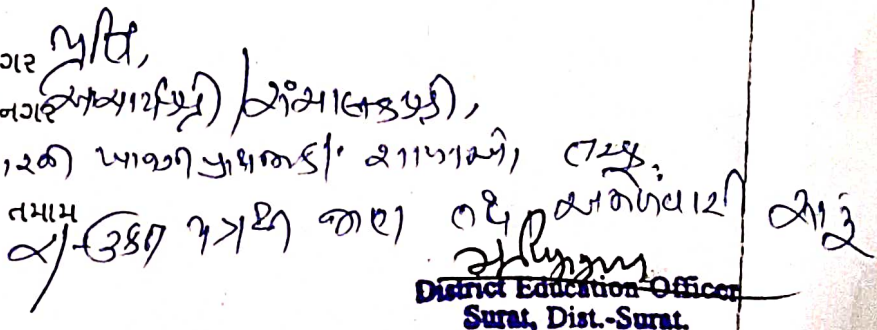 ગર પ્રતિ,
નગર આચાર્યશ્રી / સંચાલકશ્રી,
ખાનગી પ્રાથમિક શાળાઓ, તરફ
તમામ
ઉક્ત પત્રથી જાણ તથા અમલવારી સારૂ
District Education Officer
Surat, Dist.-Surat.